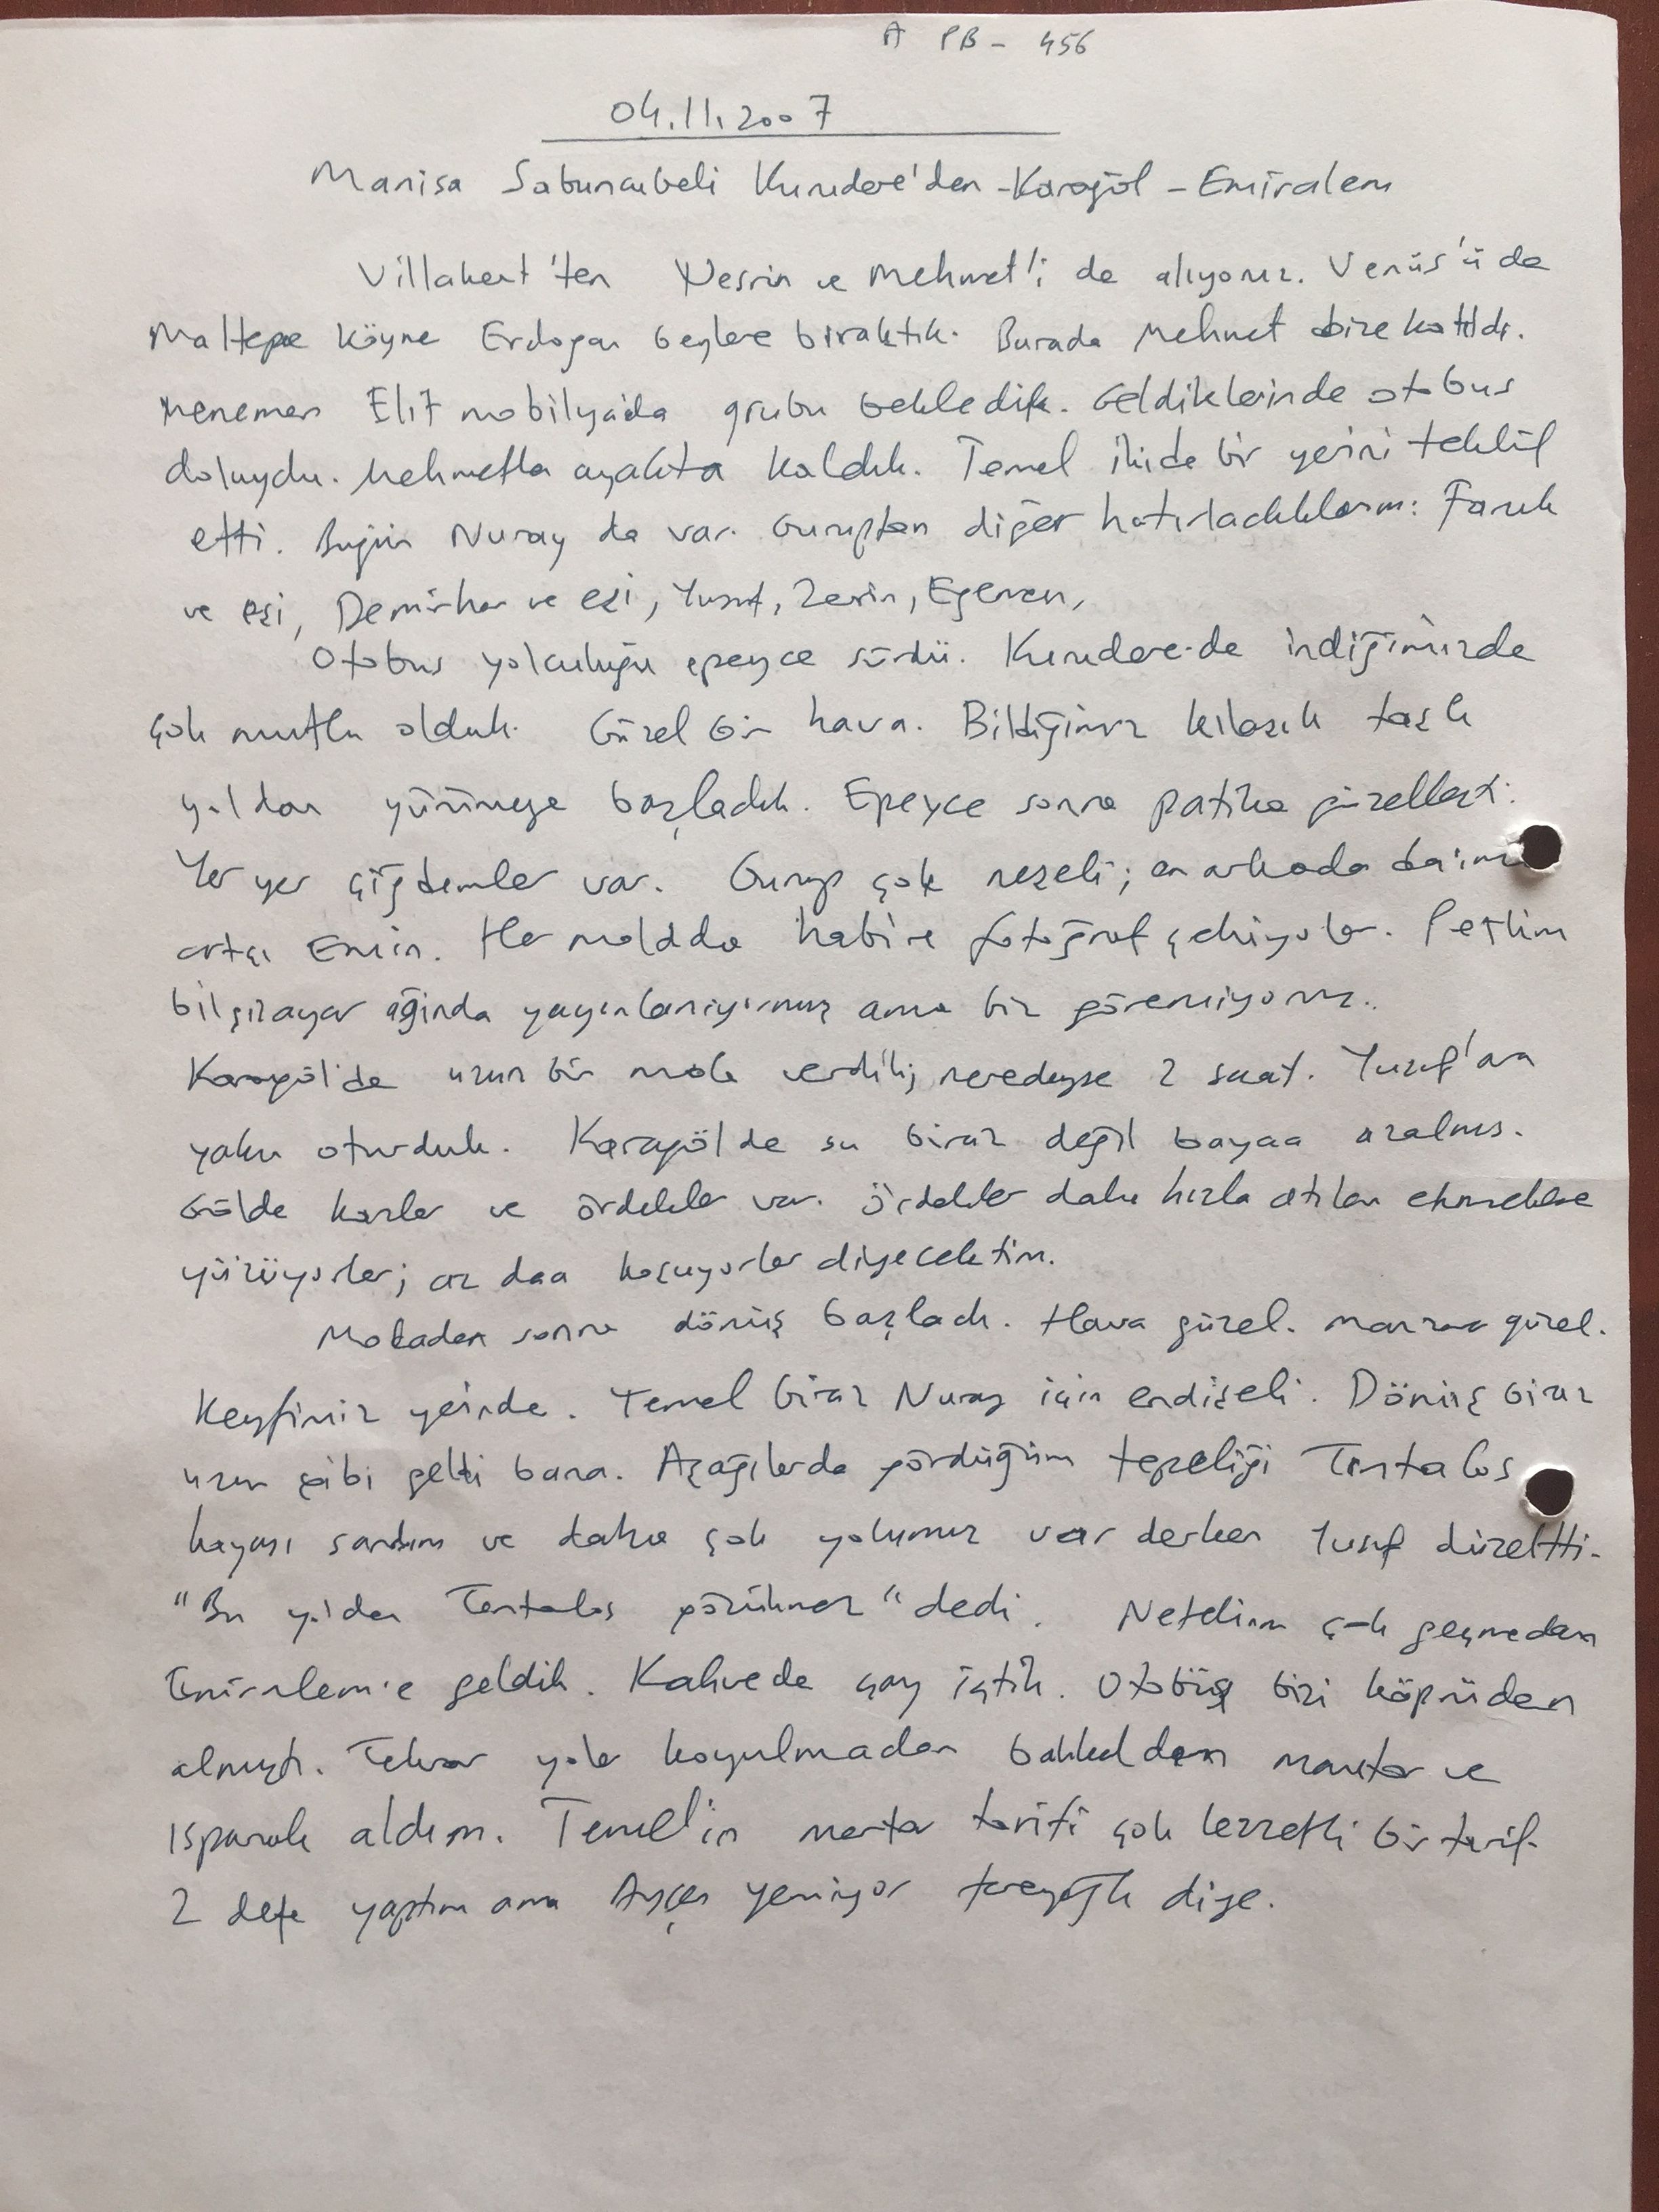 A PB - 456
04.11.2007
Manisa Sabuncubeli Kurudere'den - Karagöl - Emiralem
Villakent'ten Nesrin ve Mehmet'i de alıyoruz. Venüs'ü de
Maltepe Köyne Erdoğan beylere bıraktık. Burada Mehmet bize katıldı.
Menemen Elif mobilya'da grubu bekledik. Geldiklerinde otobus
doluydu. Mehmetla ayakta kaldık. Temel ikide bir yerini teklif
etti. Bugün Nuray da var. Guruptan diğer hatırladıklarım: Faruk
ve eşi, Demirhan ve eşi, Yusuf, Zerrin, Egemen,
Otobus yolculuğu epeyce sürdü. Kurudere-de indiğimizde
çok mutlu olduk. Güzel bir hava. Bildiğimiz klasik taşlı
yoldan yürümeye başladık. Epeyce sonra patika güzelleşti.
Yer yer çiğdemler var. Gurup çok neşeli; en arkada daima
artçı Emin. Her molada habire fotoğraf çekiyorlar. Petkim
bilgizayar ağında yayınlanıyormuş ama biz göremiyoruz..
Karagöl'de uzun bir mola verdik; neredeyse 2 saat. Yusuf'a
yakın oturduk. Karagölde su biraz değil bayaa azalmıs.
Gölde kazlar ve ördekler var. Ördekler daha hızla atılan ekmeklere
yürüyorlar; az daa koşuyorlar diyecektim.
Moladan sonra dönüş başladı. Hava güzel. manzara güzel.
Keyfimiz yerinde. Temel biraz Nuray için endişeli. Dönüş biraz
uzun gibi geldi bana. Aşağılarda gördüğüm tepeliği Tantalos
kayası sandım ve daha çok yolumuz var derken Yusuf düzeltti.
"Bu yoldan Tantalos görünmez" dedi. Netekim çok geçmeden
Emiralem'e geldik. Kahvede çay içtik. Otobüs bizi köprüden
almıştı. Tekrar yola koyulmadan bakkaldan mantar ve
ıspanak aldım. Temel'in mantar tarifi çok lezzetli bir tarif.
2 defa yaptım ama Ayşen yemiyor tereyağlı diye.